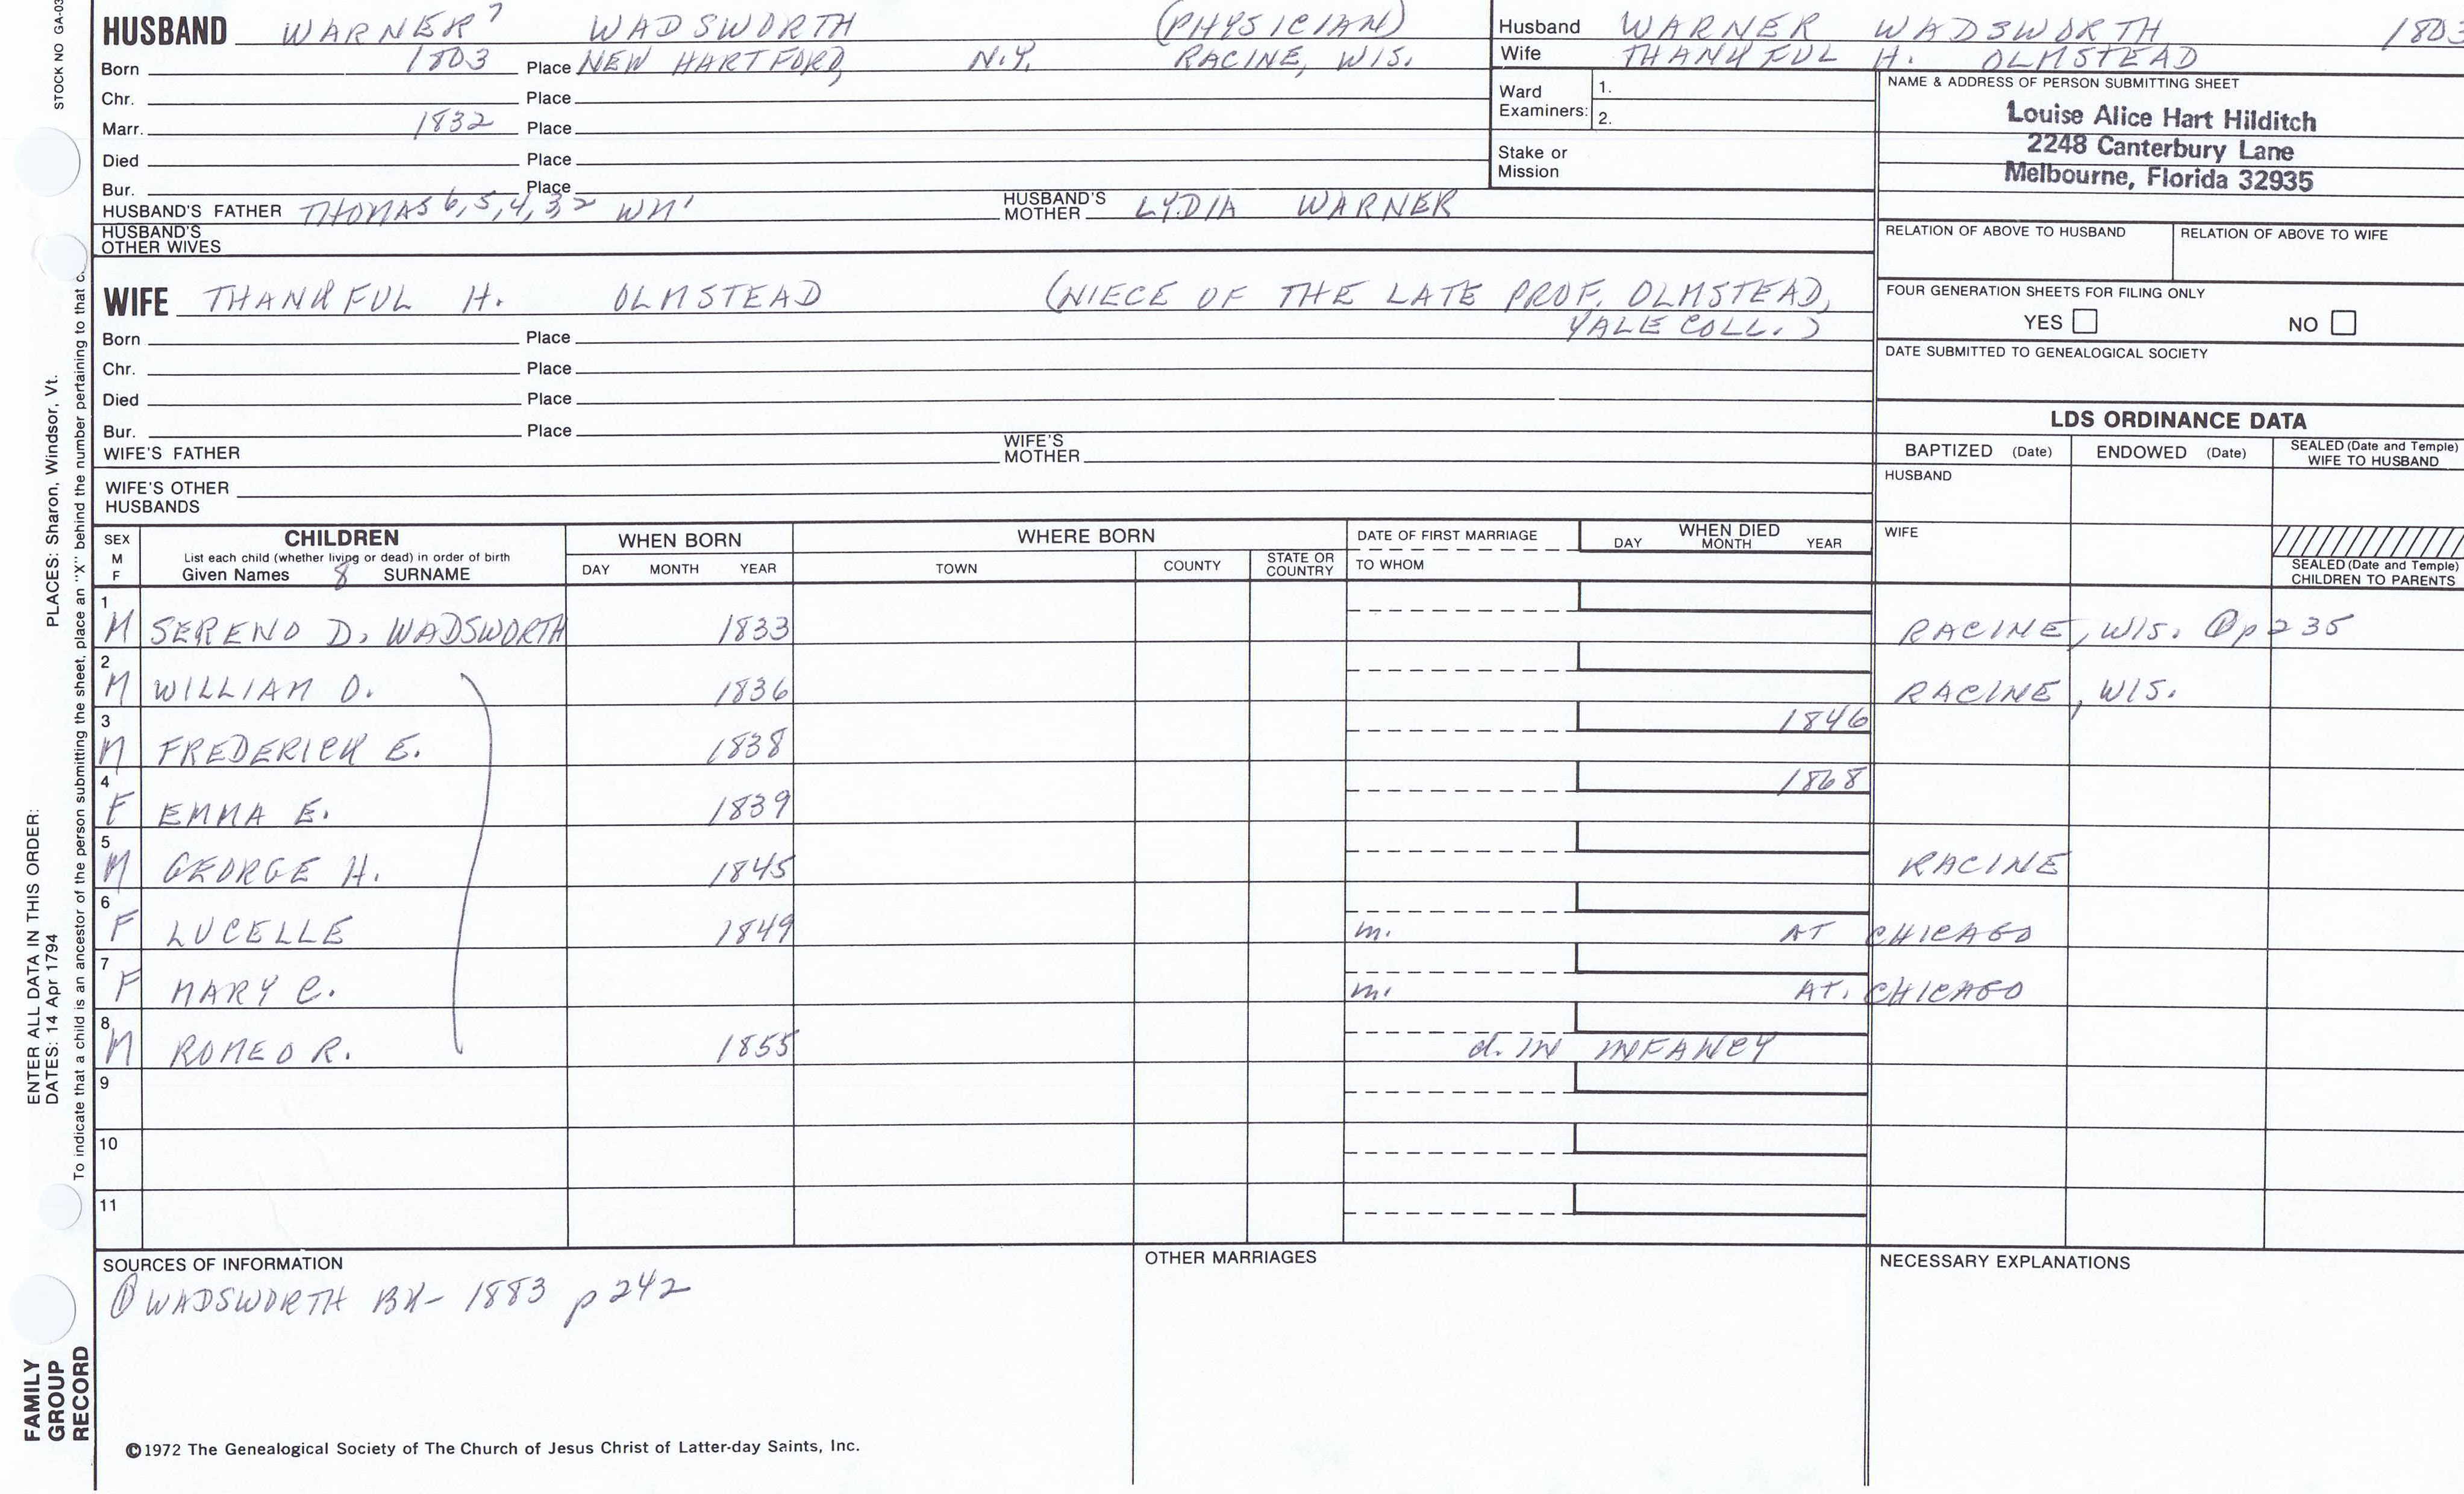 STOCK NO GA-03
HUSBAND WARNER⁷ WADSWORTH (PHYSICIAN)
Born 1803 Place NEW HARTFORD, N.Y. RACINE, WIS.
Chr. Place
Marr. 1832 Place
Died Place
Bur. Place
HUSBAND'S FATHER THOMAS 6, 5, 4, 3 2 WM' HUSBAND'S MOTHER LYDIA WARNER
HUSBAND'S OTHER WIVES
Husband WARNER WADSWORTH 1803
Wife THANKFUL H. OLMSTEAD
Ward Examiners: 1.
2.
Stake or Mission
NAME & ADDRESS OF PERSON SUBMITTING SHEET
Louise Alice Hart Hilditch
2248 Canterbury Lane
Melbourne, Florida 32935
RELATION OF ABOVE TO HUSBAND RELATION OF ABOVE TO WIFE
FOUR GENERATION SHEETS FOR FILING ONLY
YES NO
DATE SUBMITTED TO GENEALOGICAL SOCIETY
WIFE THANKFUL H. OLMSTEAD (NIECE OF THE LATE PROF. OLMSTEAD,
YALE COLL.)
Born Place
Chr. Place
Died Place
Bur. Place
WIFE'S FATHER WIFE'S MOTHER
WIFE'S OTHER HUSBANDS
LDS ORDINANCE DATA
BAPTIZED (Date) ENDOWED (Date) SEALED (Date and Temple) WIFE TO HUSBAND
HUSBAND
WIFE
SEALED (Date and Temple) CHILDREN TO PARENTS
SEX M F CHILDREN WHEN BORN WHERE BORN DATE OF FIRST MARRIAGE WHEN DIED
List each child (whether living or dead) in order of birth
Given Names 8 SURNAME DAY MONTH YEAR TOWN COUNTY STATE OR COUNTRY TO WHOM DAY MONTH YEAR
1 M SERENO D. WADSWORTH 1833 RACINE, WIS. ① p 235
2 M WILLIAM O. 1836 RACINE, WIS.
3 M FREDERICK E. 1838 1846
4 F EMMA E. 1839 1868
5 M GEORGE H. 1845 RACINE
6 F LUCELLE 1849 m. AT CHICAGO
7 F MARY C. m. AT. CHICAGO
8 M ROMEO R. 1855 d. IN INFANCY
9
10
11
SOURCES OF INFORMATION
① WADSWORTH BK- 1883 p 242
OTHER MARRIAGES
NECESSARY EXPLANATIONS
©1972 The Genealogical Society of The Church of Jesus Christ of Latter-day Saints, Inc.
FAMILY GROUP RECORD
ENTER ALL DATA IN THIS ORDER:
DATES: 14 Apr 1794 PLACES: Sharon, Windsor, Vt.
To indicate that a child is an ancestor of the person submitting the sheet, place an "X" behind the number pertaining to that c